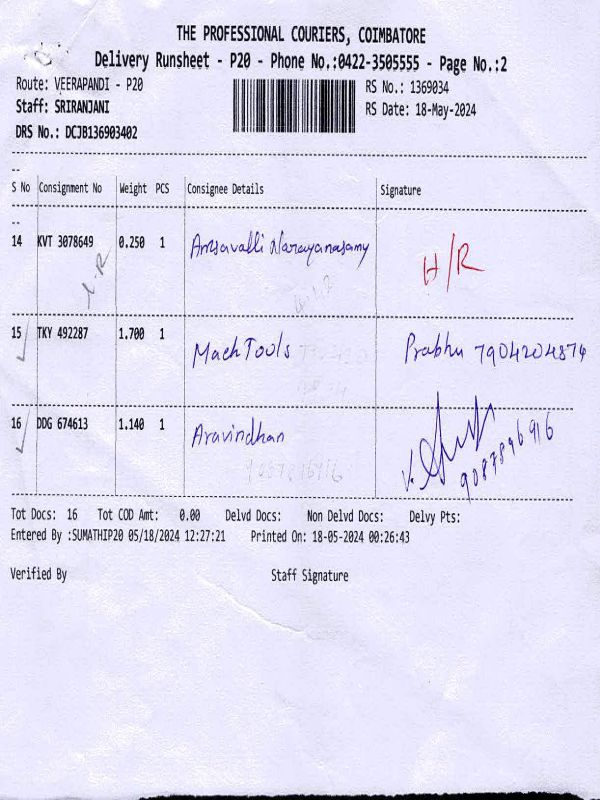 THE PROFESSIONAL COURIERS, COIMBATORE
Delivery Runsheet - P20 - Phone No.:0422-3505555 - Page No.:2
Route: VEERAPANDI - P20 RS No.: 1369034
Staff: SRIRANJANI RS Date: 18-May-2024
DRS No.: DCJB136903402
S No Consignment No Weight PCS Consignee Details Signature
14 KVT 3078649 0.250 1 Narayanasamy H/R
15 TKY 492287 1.700 1 Mach Tools Prabhu 7904204874
16 DDG 674613 1.140 1 Aravindhan
9087896916
Tot Docs: 16 Tot COD Amt: 0.00 Delvd Docs: Non Delvd Docs: Delvy Pts:
Entered By :SUMATHIP20 05/18/2024 12:27:21 Printed On: 18-05-2024 00:26:43
Verified By Staff Signature